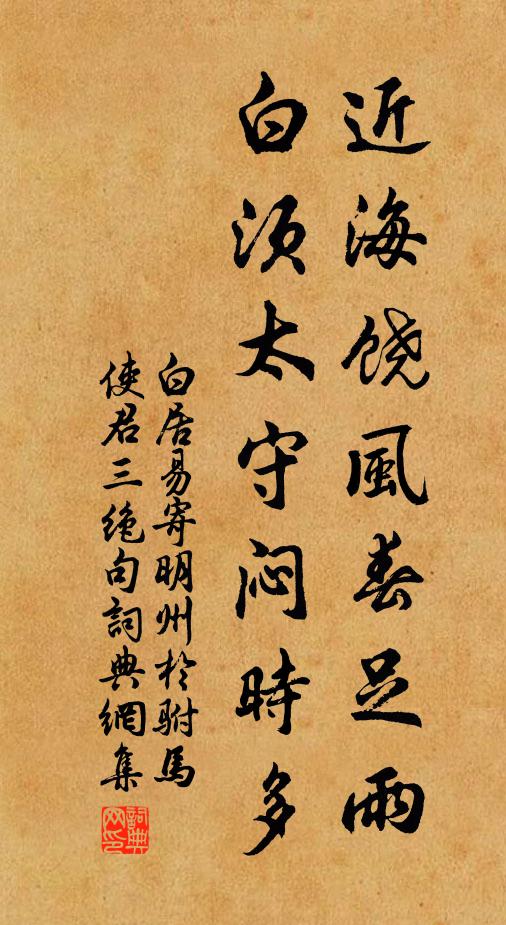 近海饶風春足雨
白须太守闷時多
白居易寄明州於駙馬
使君三绝句詞典網集
詞典网印